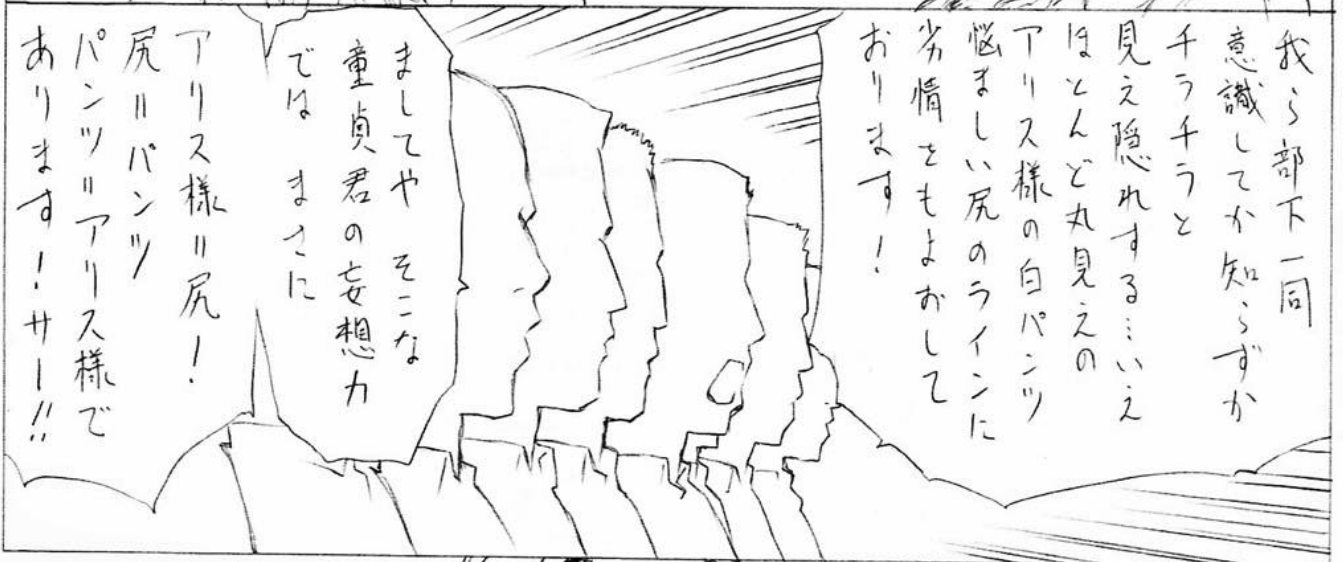 我ら部下一同
意識してか知らずか
チラチラと
見え隠れする…いえ
ほとんど丸見えの
アリス様の白パンツ
悩ましい尻のラインに
劣情をもよおして
おります！
ましてや そこな
童貞君の妄想力
では まさに
アリス様＝尻！
尻＝パンツ
パンツ＝アリス様で
あります！サー!!